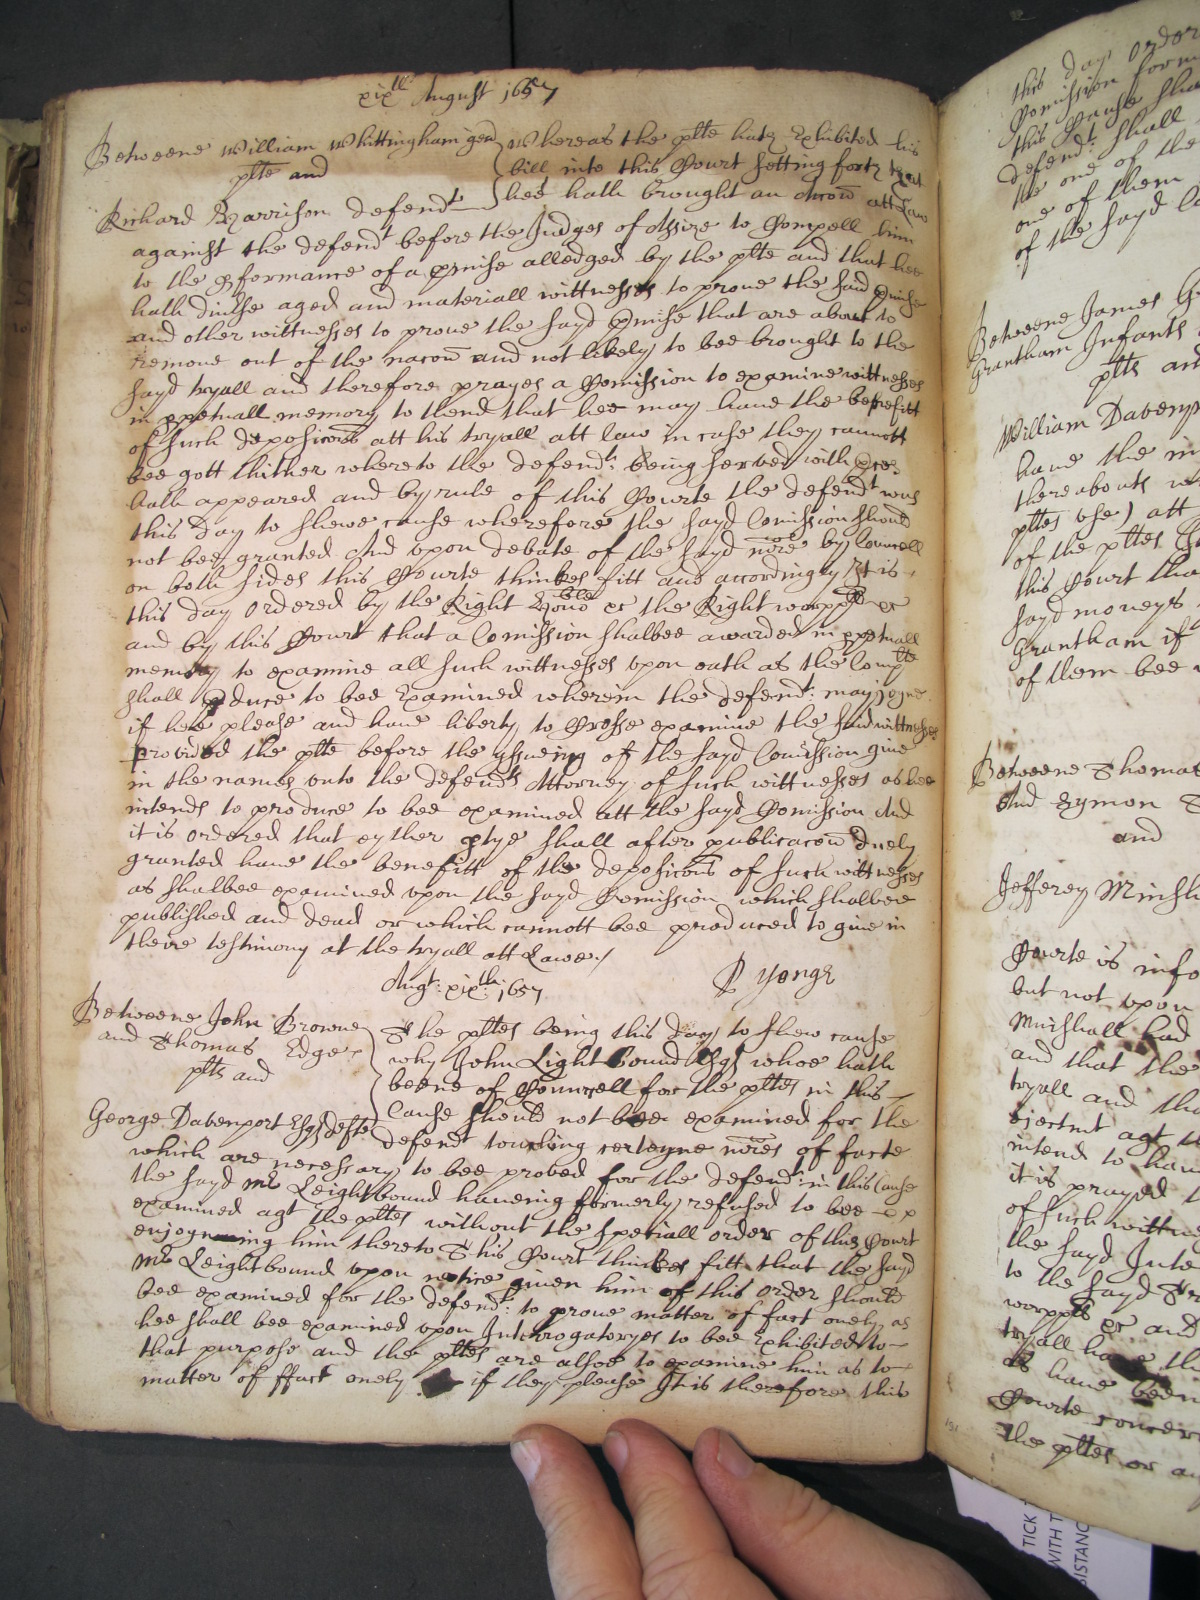 xixth August 1657
Betweene William Whittingham gen Whereas the plte hath Exhibited his
plte and bill into this Court setting forth that
Richard Harrison defendt hee hath brought an Accon att Law
against the defendt before the Judges of Assize to Compell him
to the pformance of a pmise alledged by the plte and that hee
hath diuse aged and materiall wittnesses to proue the said pmise
and other wittnesses to proue the sayd pmise that are about to
remoue out of the nacon and not likely to bee brought to the
sayd tryall and therefore prayes a Comission to examine wittnesses
in ppetuall memory to thend that hee may haue the benefitt
of such deposicons att his tryall att law in case they cannott
bee gott thither whereto the defendt: being served with pces
hath appeared and by rule of this Courte the defendt was
this day to shewe cause wherefore the sayd Comission should
not bee granted And vpon debate of the sayd by Councell
on both sides this Courte thinkes fitt and accordingly It is
this day Ordered by the Right Honoble &c the Right worppll &c
and by this Court that a Comission shalbee awarded in ppetuall
memory to examine all such wittnesses vpon oath as the Complte
shall pduce to bee Examined wherein the defendt: may joyne
if hee please and haue liberty to Crosse examine the said wittnesses
Provided the plte before the yssueing of the sayd Comission giue
in the names vnto the defendts Attorney of such wittnesses as hee
intends to produce to bee examined att the sayd Comission And
it is ordered that eyther ptye shall after publicacon duely
granted haue the benefitt of the deposicons of such wittnesses
as shalbee examined vpon the sayd Comission which shalbee
published and dead or which cannott bee produced to giue in
theire testimony at the tryall att Lawe/
P Yonge
Augt: xixth: 1657
Betweene John Browne The pltes being this day to shew cause
and Thomas Edge why John Lightbound Esqr whoe hath
plts and beene of Councell for the pltes in this
George Davenport Esqr defte Cause should not bee examined for the
defendt touching certeyne of facte
which are necessary to bee proved for the defendt: in this Cause
the sayd Mr Leightbound haueing formerly refused to bee
examined agt the pltes without the speciall order of this Court
enjoyneing him thereto This Court thinkes fitt that the sayd
Mr Leightbound vpon notice giuen him of this Order should
bee examined for the defendt: to proue matter of fact onely as
hee shall bee examined vpon Interrogatoryes to bee Exhibited to
that purpose and the pltes are alsoe to examine him as to
matter of ffact onely if they please It is therefore this
this day Order
Comission
this Cause sha
defendt: shall
the one of the
one of them
of the sayd
Betweene James
Grantham Infants
plts and
William Davenp
haue the
thereabouts
pltes vse) att
of the pltes
this Court tha
sayd moneys
Grantham if
of them bee
Betweene Thomas
And Symon
and
Jefferey Minsh
Courte is info
but not vpon
Minshall had
and that the
tryall and tha
ejectmt agt
intend to hau
it is prayed
of such wittne
the sayd Inte
to the sayd
worppll &c and
tryall haue th
as haue been
Courte concer
the pltes or
191
TICK
WITH T
DISTANC